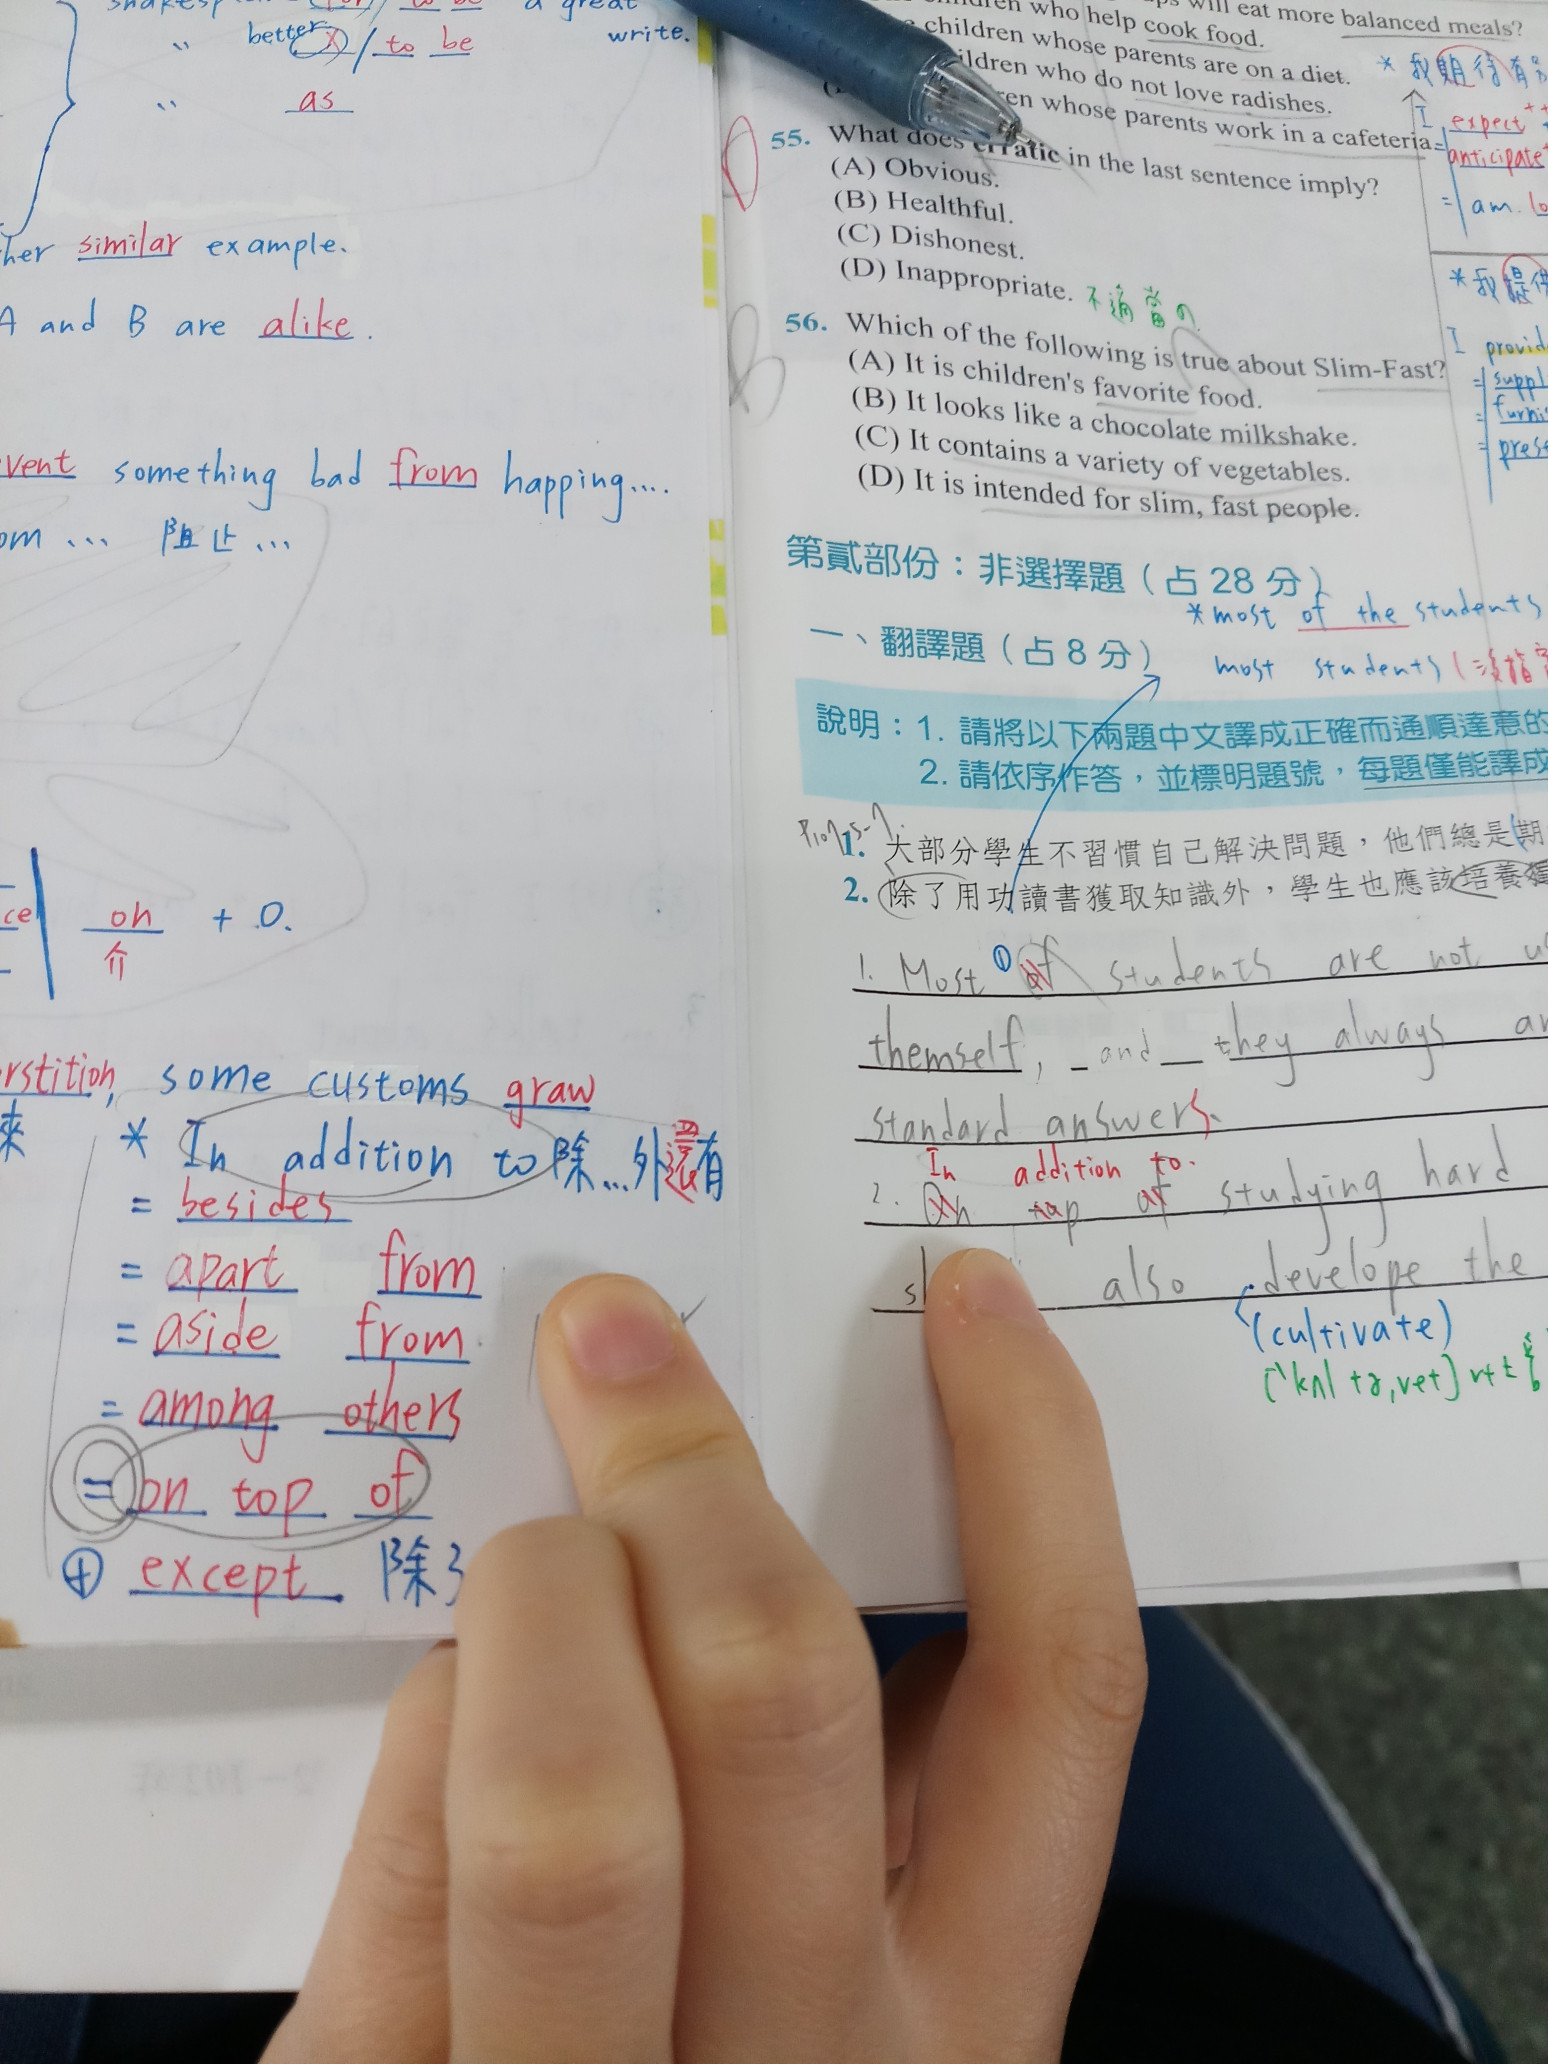 better (x) / to be write.
" as
similar example.
A and B are alike.
something bad from happing....
... 阻止 ...
on + O.
介
, some customs graw
來
* In addition to 除...外還有
= besides
= apart from
= aside from
= among others
= on top of
⊕ except 除了
will eat more balanced meals?
who help cook food.
children whose parents are on a diet.
who do not love radishes.
whose parents work in a cafeteria
55. What does erratic in the last sentence imply?
(A) Obvious.
(B) Healthful.
(C) Dishonest.
(D) Inappropriate. 不適當的
56. Which of the following is true about Slim-Fast?
(A) It is children's favorite food.
(B) It looks like a chocolate milkshake.
(C) It contains a variety of vegetables.
(D) It is intended for slim, fast people.
* 我期待有
I expect
= anticipate
= am
* 我提供
I
=
=
=
第貳部份：非選擇題（占 28 分）
* most of the students
一、翻譯題（占 8 分）
most students (沒指定
說明：1. 請將以下兩題中文譯成正確而通順達意的
2. 請依序作答，並標明題號，每題僅能譯成
1. 大部分學生不習慣自己解決問題，他們總是期
2. 除了用功讀書獲取知識外，學生也應該培養獨
1. Most ① of students are not
themself, and they always
standard answers.
In addition to.
2. On top of studying hard
also develope the
(cultivate)